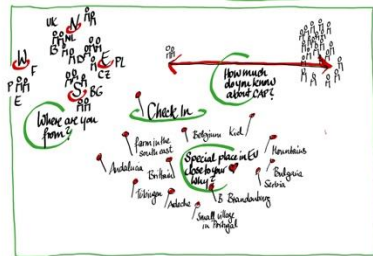 UK
N
NL
B
D
W
F
E
PL
CZ
P
E
S
BG
Where are you
from?
How much
do you know
about CAP?
Check In
farm in the
south east
Belgium
Kiel
Andalucia
Brittany
Special place in EU
close to your
Why?
Mountains
Bulgaria
Serbia
Tübingen
Ardeche
B. Brandenburg
Small village
in Portugal